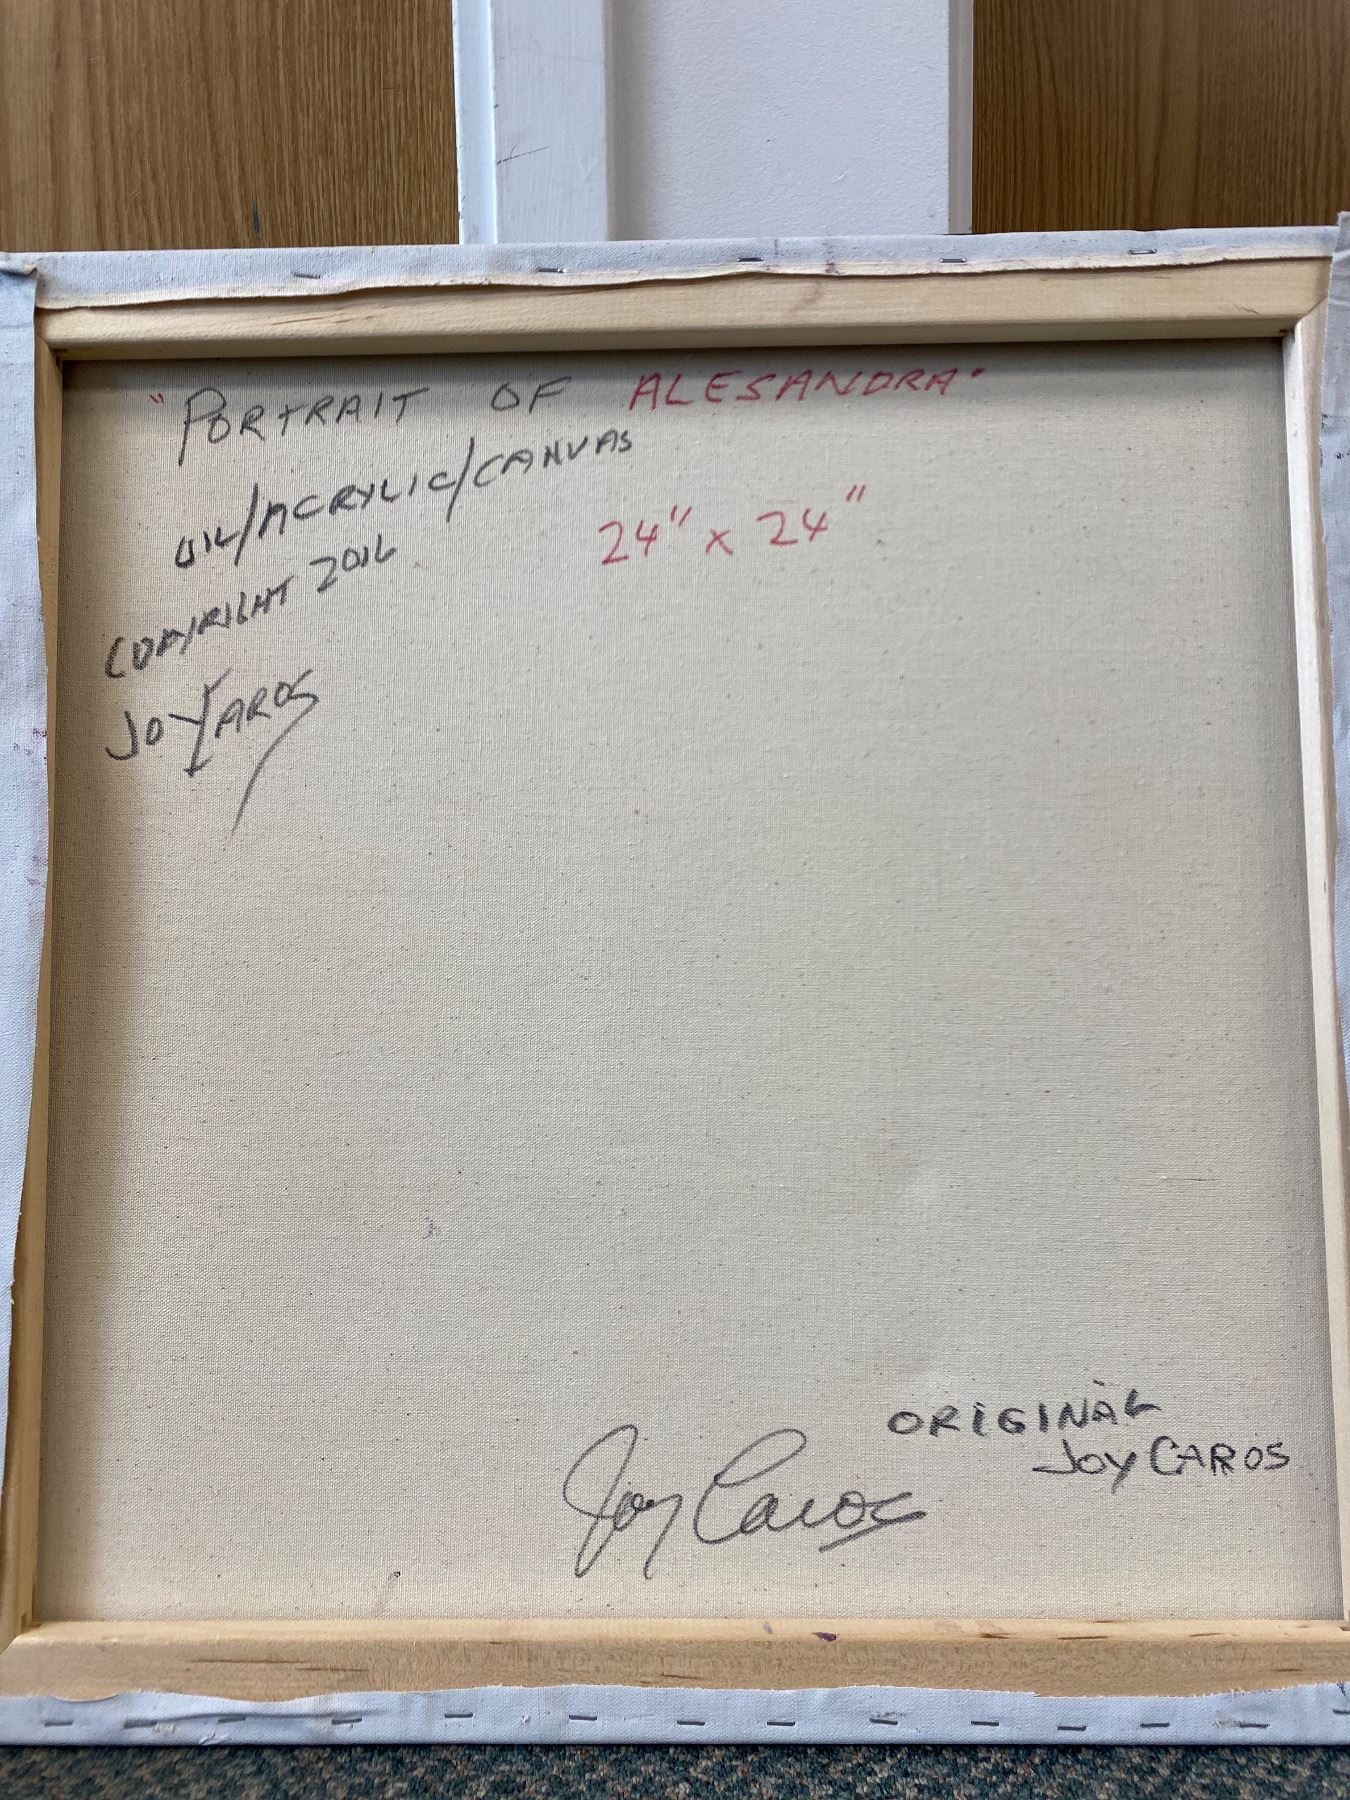 "PORTRAIT OF ALESANDRA"
OIL/ACRYLIC/CANVAS
24" x 24"
COPYRIGHT 2016
JOY CAROS
ORIGINAL
JOY CAROS
Joy Caros